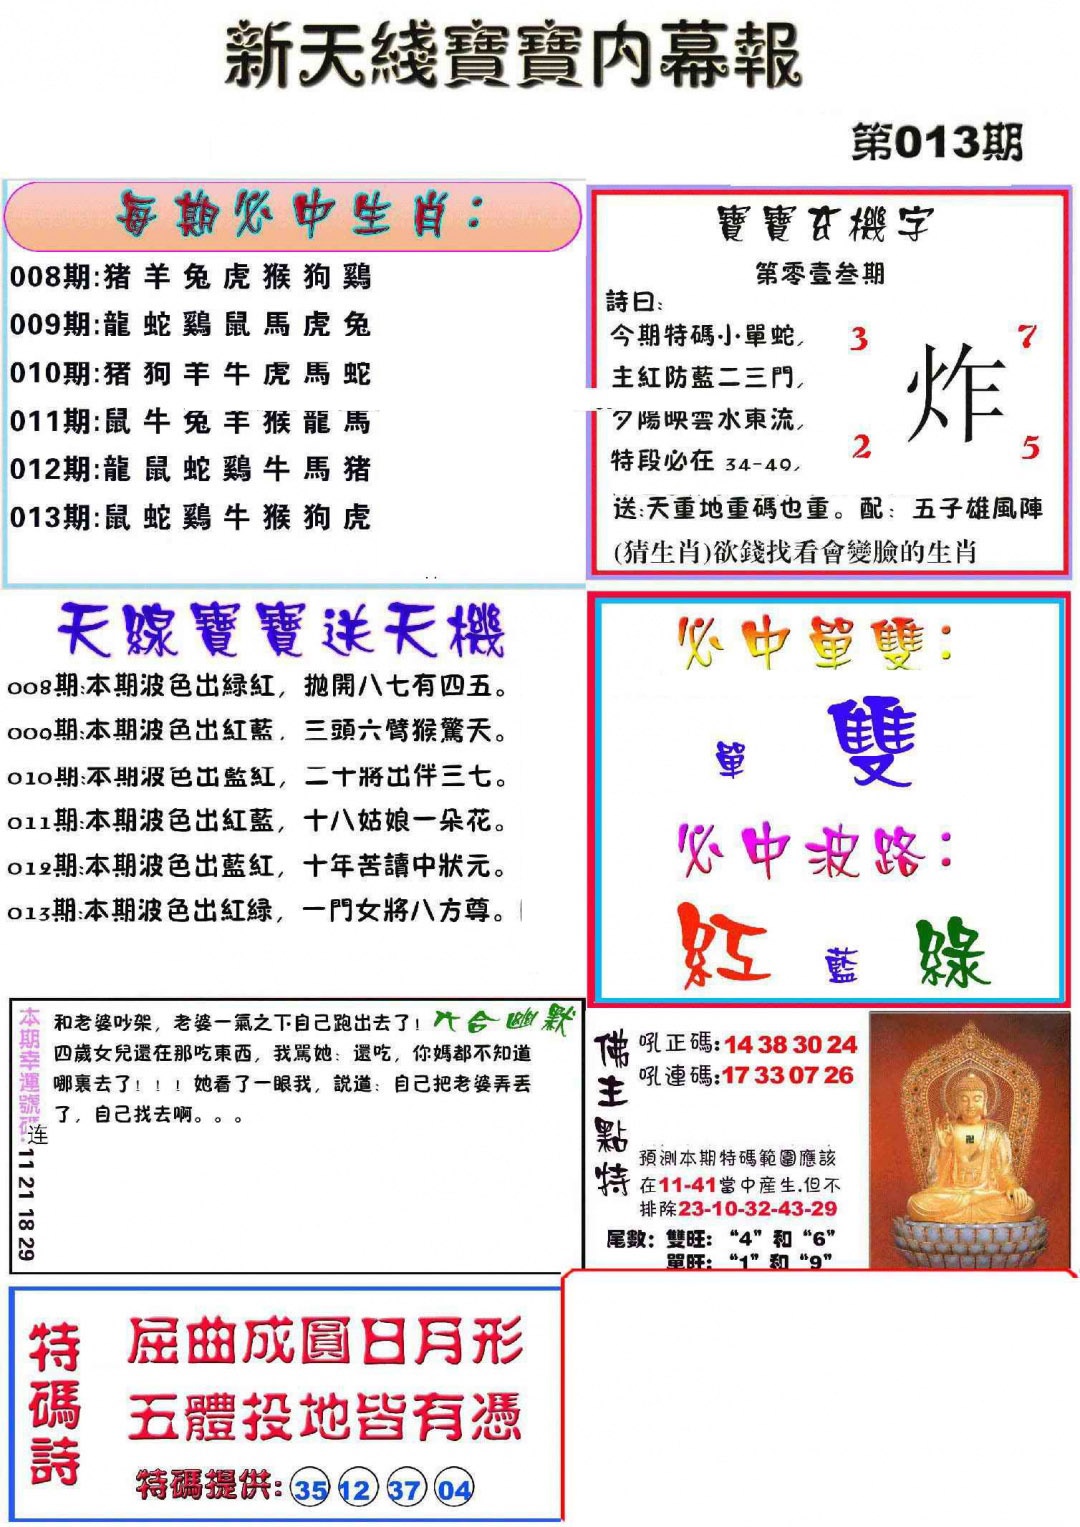 新天綫寶寶内幕報
第013期
每期必中生肖：
008期:猪羊兔虎猴狗鷄
009期:龍蛇鷄鼠馬虎兔
010期:猪狗羊牛虎馬蛇
011期:鼠牛兔羊猴龍馬
012期:龍鼠蛇鷄牛馬猪
013期:鼠蛇鷄牛猴狗虎
寶寶玄機字
第零壹叁期
詩曰:
今期特碼小單蛇,
主紅防藍二三門,
夕陽映雲水東流,
特段必在 34-49,
3 7
炸
2 5
送:天重地重碼也重。配：五子雄風陣
(猜生肖)欲錢找看會變臉的生肖
天線寶寶送天機
008期:本期波色出緑紅，抛開八七有四五。
009期:本期波色出紅藍，三頭六臂猴驚天。
010期:本期波色出藍紅，二十將出伴三七。
011期:本期波色出紅藍，十八姑娘一朵花。
012期:本期波色出藍紅，十年苦讀中狀元。
013期:本期波色出紅緑，一門女將八方尊。
必中單雙：
單 雙
必中波路：
紅 藍 綠
本期幸運號碼:
连
11 21 18 29
六合幽默
和老婆吵架，老婆一氣之下自己跑出去了！
四歲女兒還在那吃東西，我駡她：還吃，你媽都不知道
哪裏去了！！！她看了一眼我，説道：自己把老婆弄丟
了，自己找去啊。。。
佛主點特
吼正碼:14 38 30 24
吼連碼:17 33 07 26
預測本期特碼範圍應該
在11-41當中産生.但不
排除23-10-32-43-29
尾數：雙旺：“4”和“6”
單旺：“1”和“9”
特碼詩
屈曲成圓日月形
五體投地皆有憑
特碼提供: 35 12 37 04